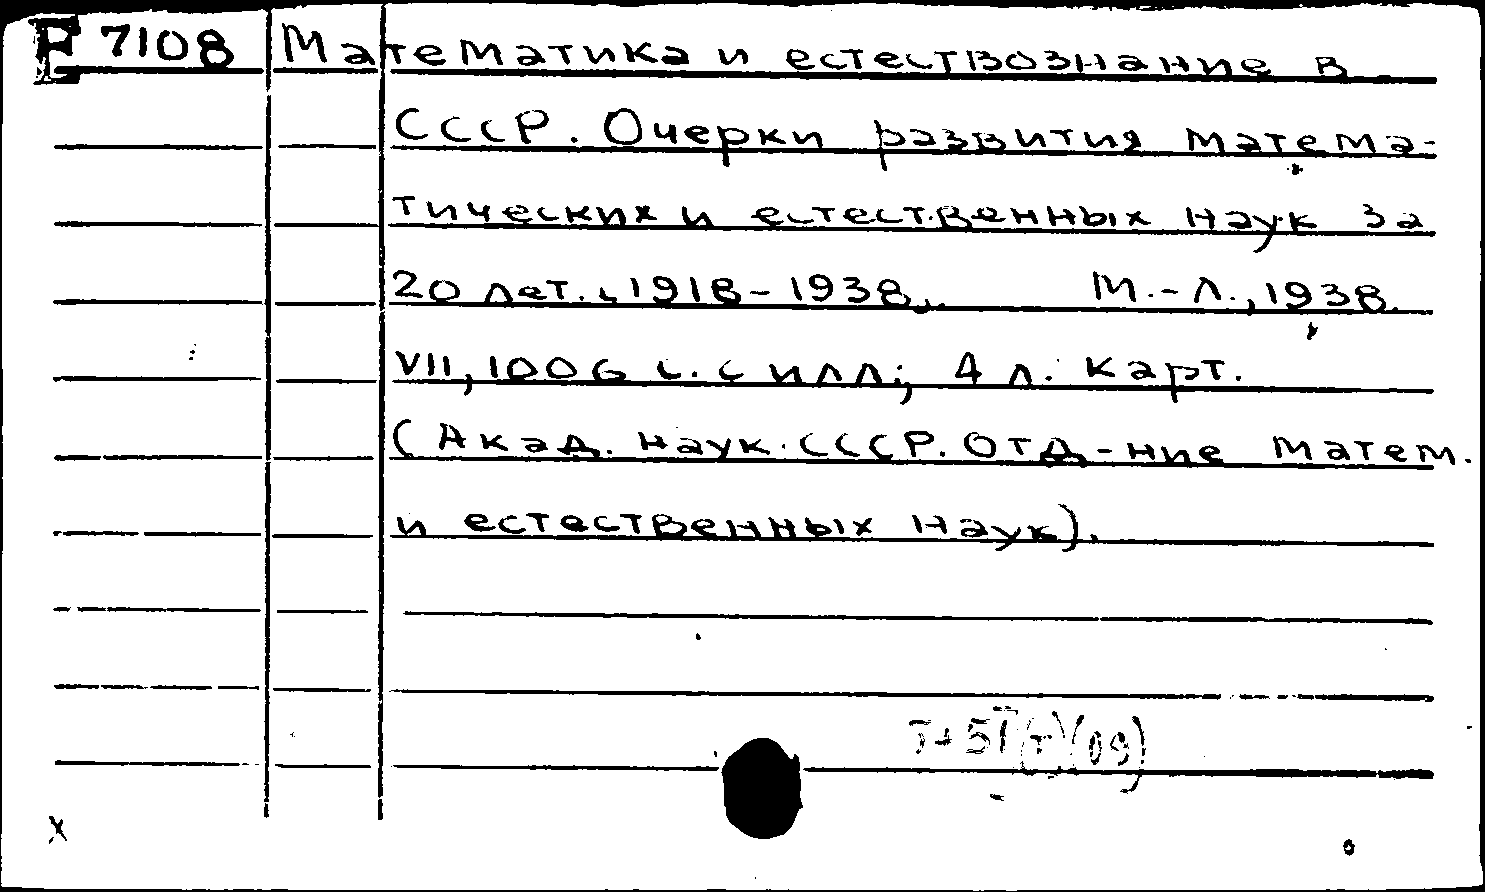 E 7108 Математика и естествознание в
СССР. Очерки развития матема-
тических и естественных наук за
20 лет. 1918-1938. М.-Л., 1938.
VII, 1006 с. с илл; 4 л. карт.
(Акад. наук. СССР. Отд-ние матем.
и естественных наук).
x